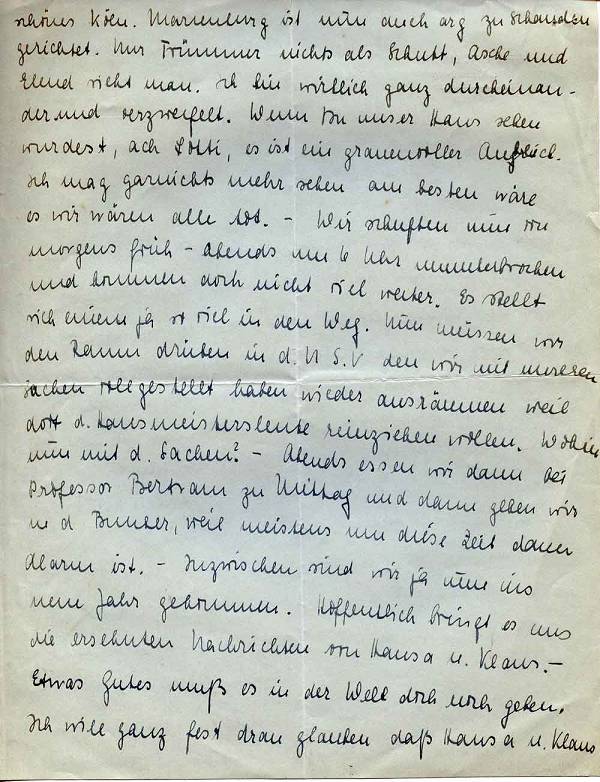 schönes Köln. Marienburg ist nun auch arg zu Schanden
gerichtet. Nur Trümmer nichts als Schutt, Asche und
Elend sieht man. Ich bin wirklich ganz durcheinan-
der und verzweifelt. Wenn Du unser Haus sehen
würdest, ach Lotti, es ist ein grauenvoller Anblick.
Ich mag garnichts mehr sehen am besten wäre
es wir wären alle tot. – Wir schuften nun von
morgens früh – abends um 6 Uhr ununterbrochen
und kommen doch nicht viel weiter. Es stellt
sich einem ja so viel in den Weg. Nun müssen wir
den Raum drüben in d. N S. V den wir mit unseren
Sachen vollgestellt haben wieder ausräumen weil
dort d. Hausmeistersleute reinziehen wollen. Wohin
nun mit d. Sachen? – Abends essen wir dann bei
Professor Bertram zu Mittag und dann gehen wir
in d Bunker, weil meistens um diese Zeit dann
Alarm ist. – Inzwischen sind wir ja nun ins
neue Jahr gekommen. Hoffentlich bringt es uns
die ersehnten Nachrichten von Hansa u. Klaus. –
Etwas Gutes muß es in der Welt doch noch geben.
Ich will ganz fest dran glauben daß Hansa u. Klaus